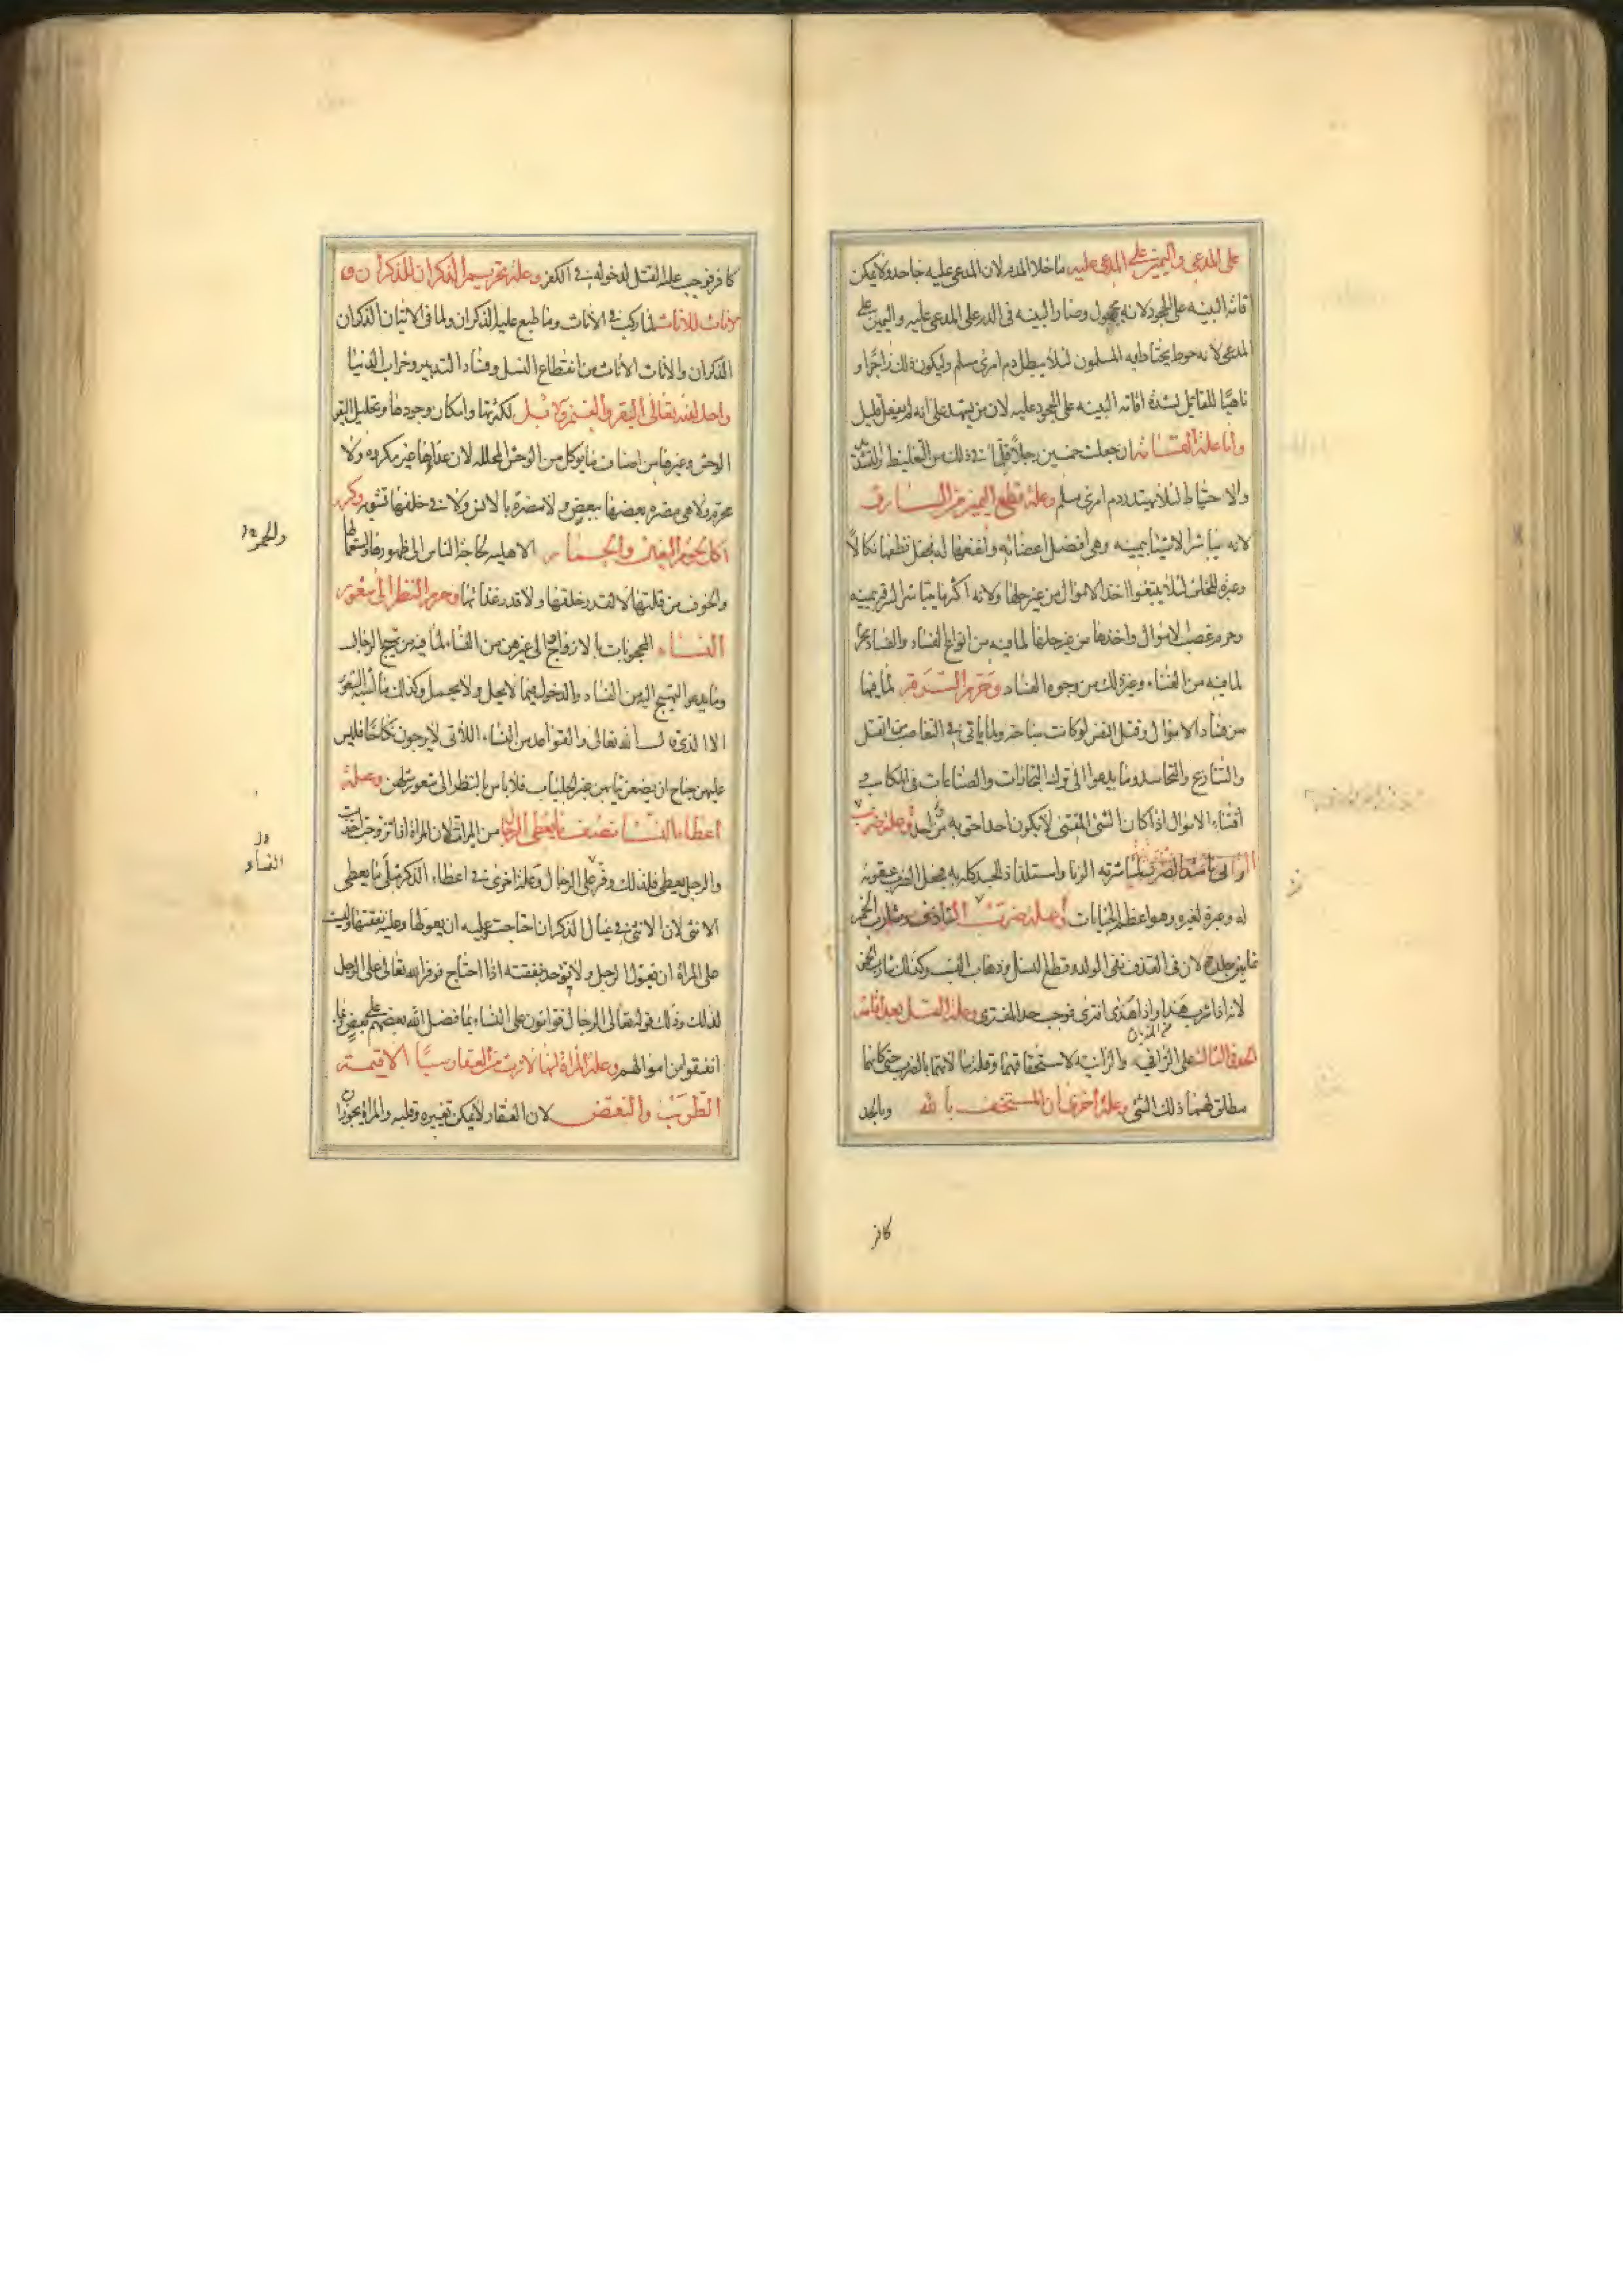 على المدعي واليمين على المدعى عليه ما خلا الدم لان المدعى عليه جاحد ولا يمكن
اقامة البينه على الجحود لانه مجهول وصار البينه فى الدم على المدعى عليه واليمين على
المدعى لانه حوط يحتاط به المسلمون لئلا يبطل دم امرئ مسلم وليكون ذلك زاجرا و
ناهيا للقاتل لشدة اقامة البينه على الجحود عليه لان من يشهد على انه لم يفعل قليل
واما علة القسامة ان جعلت خمسين رجلا فلما فى ذلك من التغليظ والتشديد
والاحتياط لئلا يهدر دم امرئ مسلم وعلة قطع اليمين من السارق
لانه يباشر الاشياء بيمينه وهى افضل اعضائه وانفعها له فجعل قطعها نكالا
وعبرة للخلق لئلا يبتغوا اخذ الاموال من غير حلها ولانه اكثر ما يباشر السرقة بيمينه
وحرم غصب الاموال واخذها من غير حلها لما فيه من انواع الفساد والفساد محرم
لما فيه من الفناء وغير ذلك من وجوه الفساد وتحريم السرقة لما فيها
من فساد الاموال وقتل النفس لو كانت مباحة ولما ياتى فى التغاصب من القتل
والتنازع والتحاسد وما يدعوا الى ترك التجارات والصناعات فى المكاسب و
اقتناء الاموال اذا كان الشئ المقتنى لا يكون احد احق به من احد وعلة ضرب
الزانى على جسده باشد الضرب لمباشرته الزنا واستلذاذ الجسد كله به فجعل الضرب عقوبة
له وعبرة لغيره وهو اعظم الجنايات وعلة ضرب القاذف وشارب الخمر
ثمانين جلدة لان فى القذف نفى الولد وقطع النسل وذهاب النسب وكذلك شارب الخمر
لانه اذا شرب هذى واذا هذى افترى فوجب حد المفترى وعلة القتل بعد اقامة
الحد فى الثالثة على الزانى والزانيه لاستخفافهما وقلة مبالاتهما بالضرب حتى كانهما
مطلق لهما ذلك الشئ وعلة اخرى ان المستخف بالله وبالحد
كافر
كافر فوجب عليه القتل لدخوله فى الكفر وعلة تحريم الذكران للذكران و
الاناث للاناث لما ركب فى الاناث وما طبع عليه الذكران ولما فى اتيان الذكران
الذكران والاناث الاناث من انقطاع النسل وفساد التدبير وخراب الدنيا
واحل الله تعالى البقر والغنم والابل لكثرتها وامكان وجودها وتحليل البقر
الوحش وغيرها من اصناف ما يؤكل من الوحش المحلله لان غذاءها غير مكروه ولا
محرم ولا هى مضرة بعضها ببعض ولا مضرة بالانس ولا فى خلقها تشويه وكره
اكل لحوم البغال والحمير الاهليه لحاجة الناس الى ظهورها واستعمالها
والخوف من قلتها لا لقذر خلقتها ولا قذر غذائها وحرم النظر الى شعور
النساء المحجوبات بالازواج والى غيرهن من النساء لما فيه من تهييج الرجال
وما يدعوا التهييج اليه من الفساد والدخول فيما لا يحل ولا يجمل وكذلك ما اشبه الشعور
الا الذى قال الله تعالى والقواعد من النساء اللاتى لا يرجون نكاحا فليس
عليهن جناح ان يضعن ثيابهن غير الجلباب فلا باس بالنظر الى شعور مثلهن وعلة
اعطاء النساء نصف ما يعطى الرجال من الميراث لان المراة اذا تزوجت اخذت
والرجل يعطى فلذلك وفر على الرجال وعلة اخرى فى اعطاء الذكر مثلى ما يعطى
الانثى لان الانثى فى عيال الذكر ان احتاجت وعليه ان يعولها وعليه نفقتها وليس
على المراة ان تعول الرجل ولا تؤخذ بنفقته اذا احتاج فوفر الله تعالى على الرجل
لذلك وذلك قوله تعالى الرجال قوامون على النساء بما فضل الله بعضهم على بعض وبما
انفقوا من اموالهم وعلة المراة انها لا ترث من العقار شيئا الا قيمة
الطوب والنقض لان العقار لا يمكن تغييره وقلبه والمراة يجوز ان